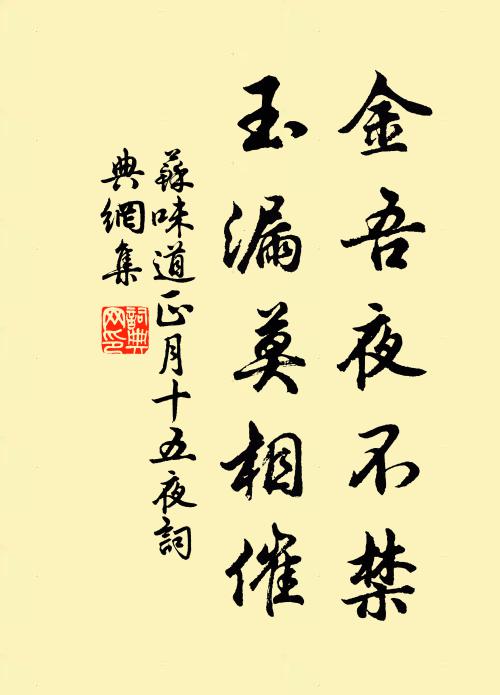 金吾夜不禁
玉漏莫相催
蘇味道正月十五夜詞
典網集
詞典
网印